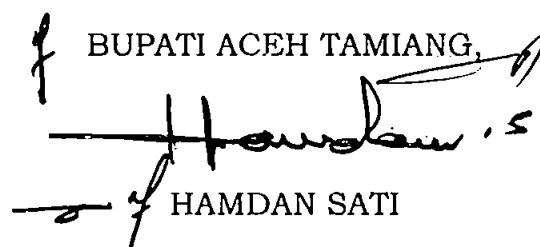 BUPATI ACEH TAMIANG,
Hamdan . S
HAMDAN SATI